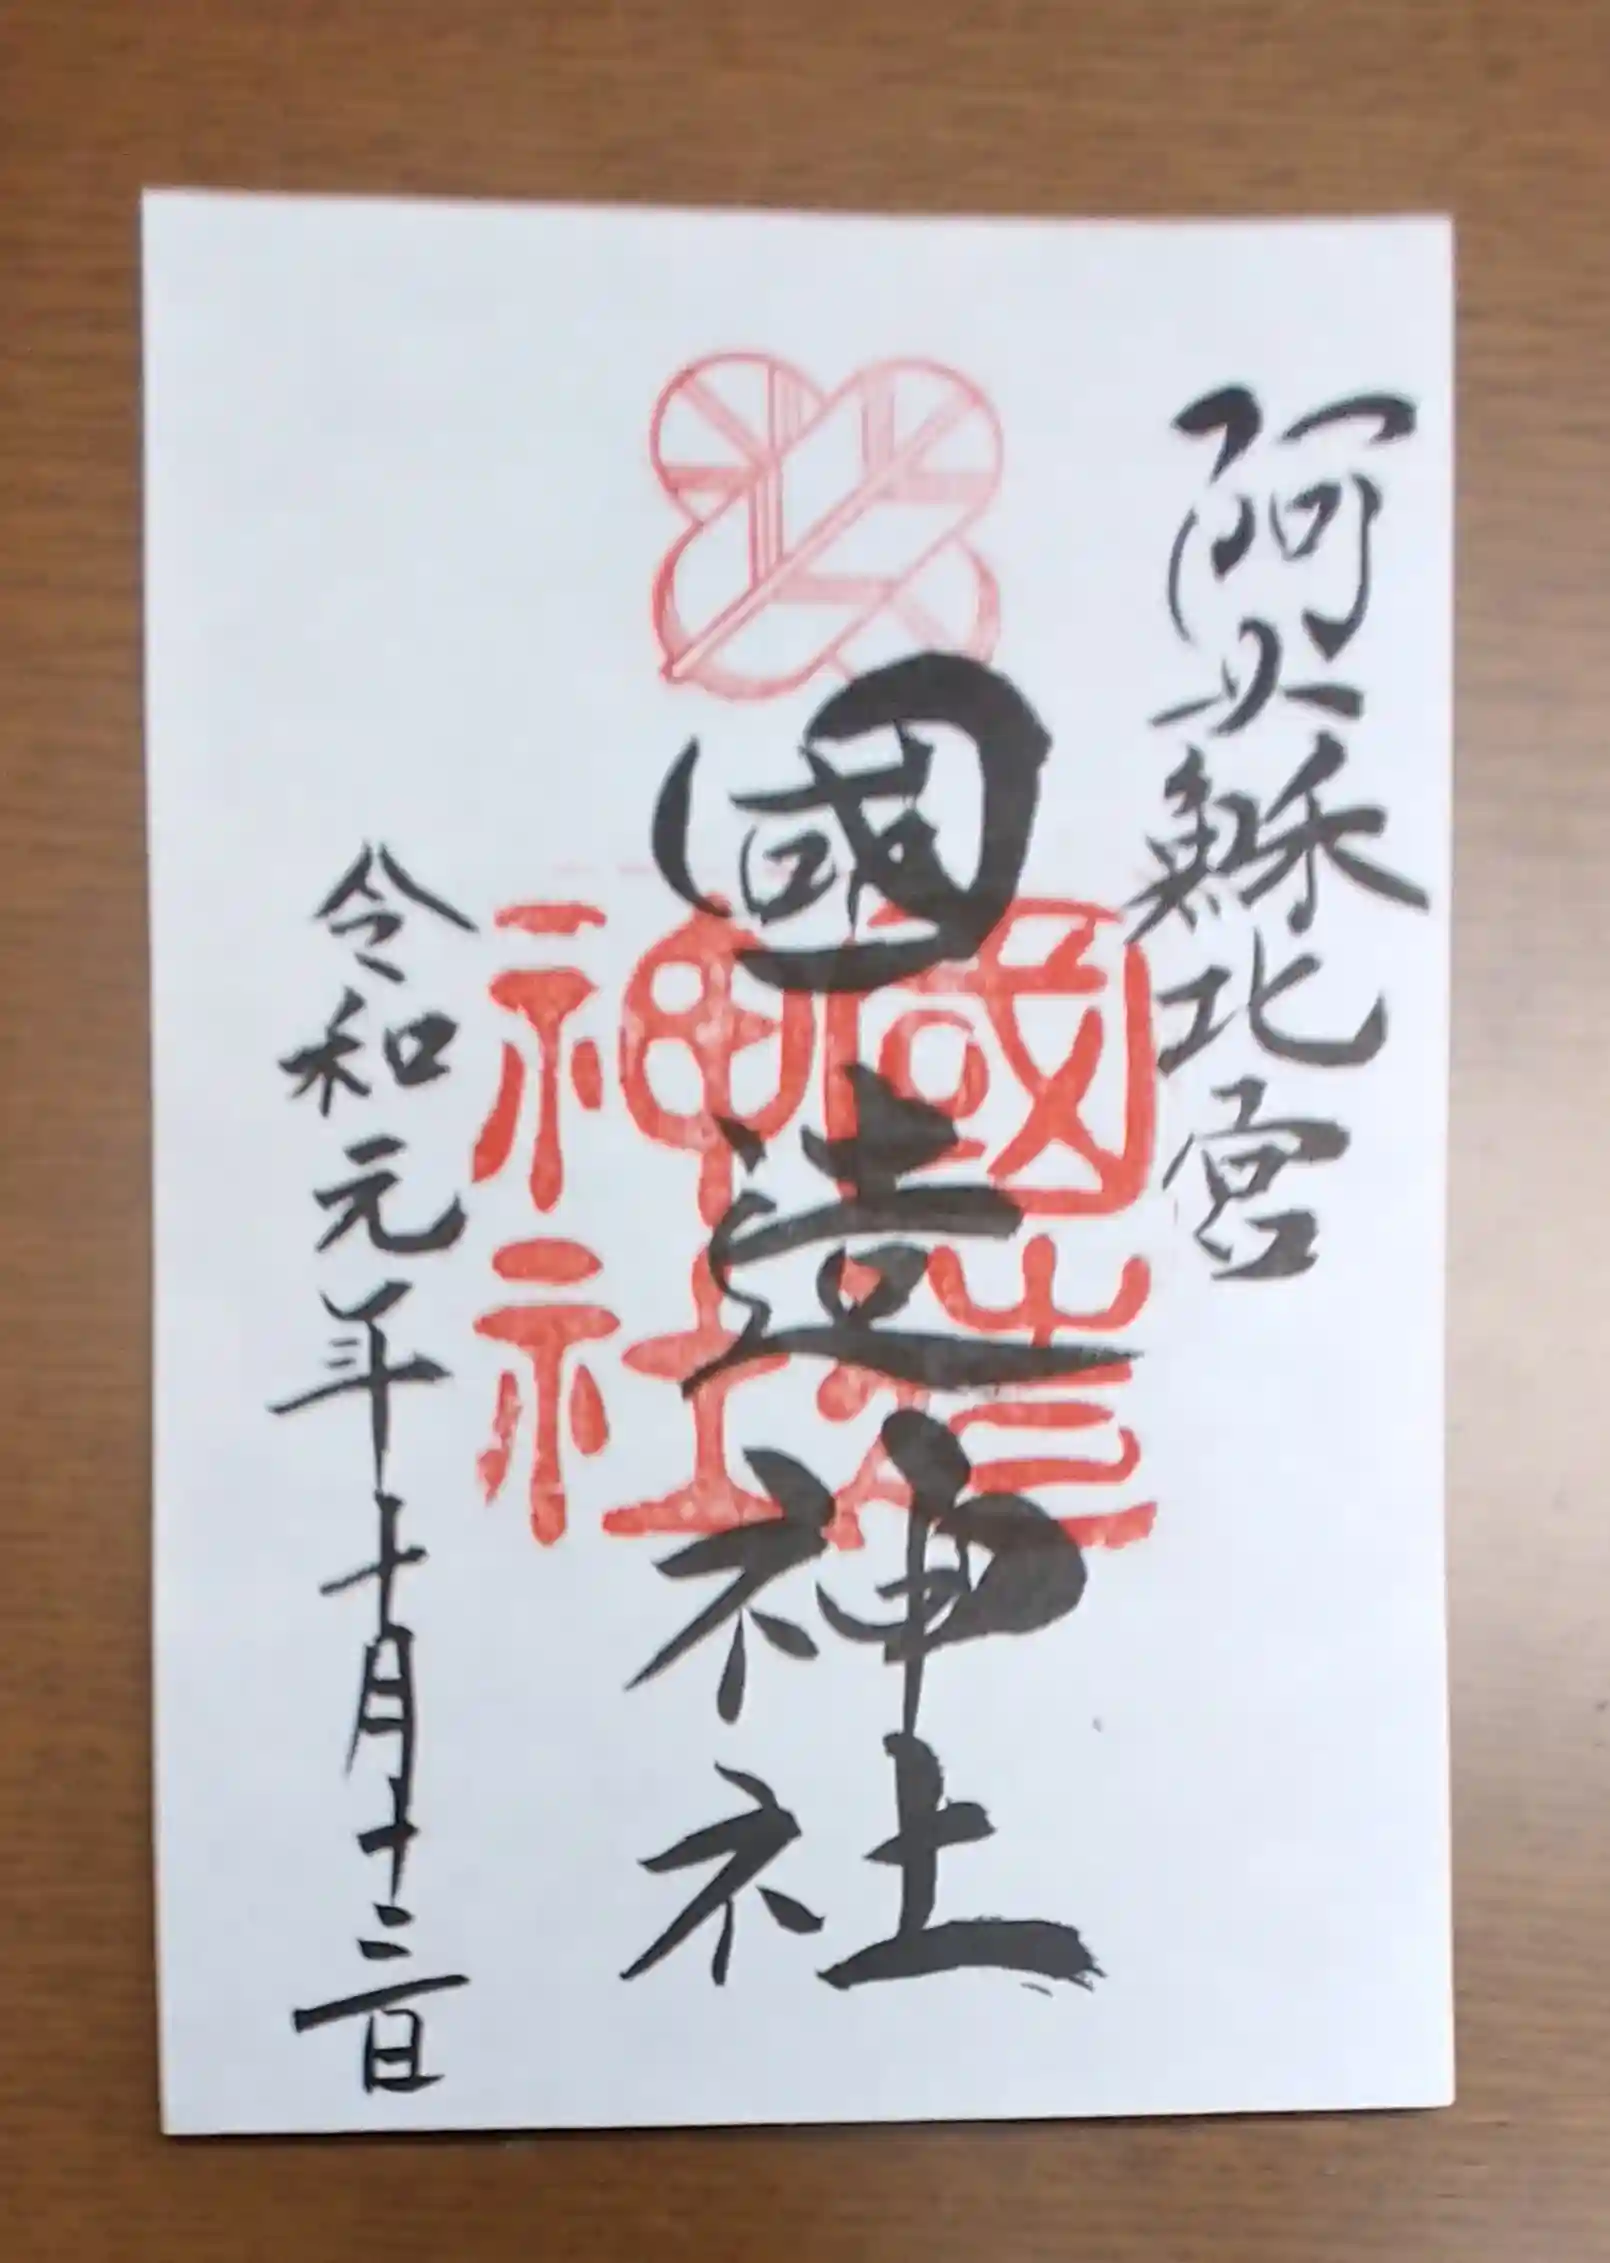 阿蘇北宮
國造神社
國造神社
令和元年十月十三日